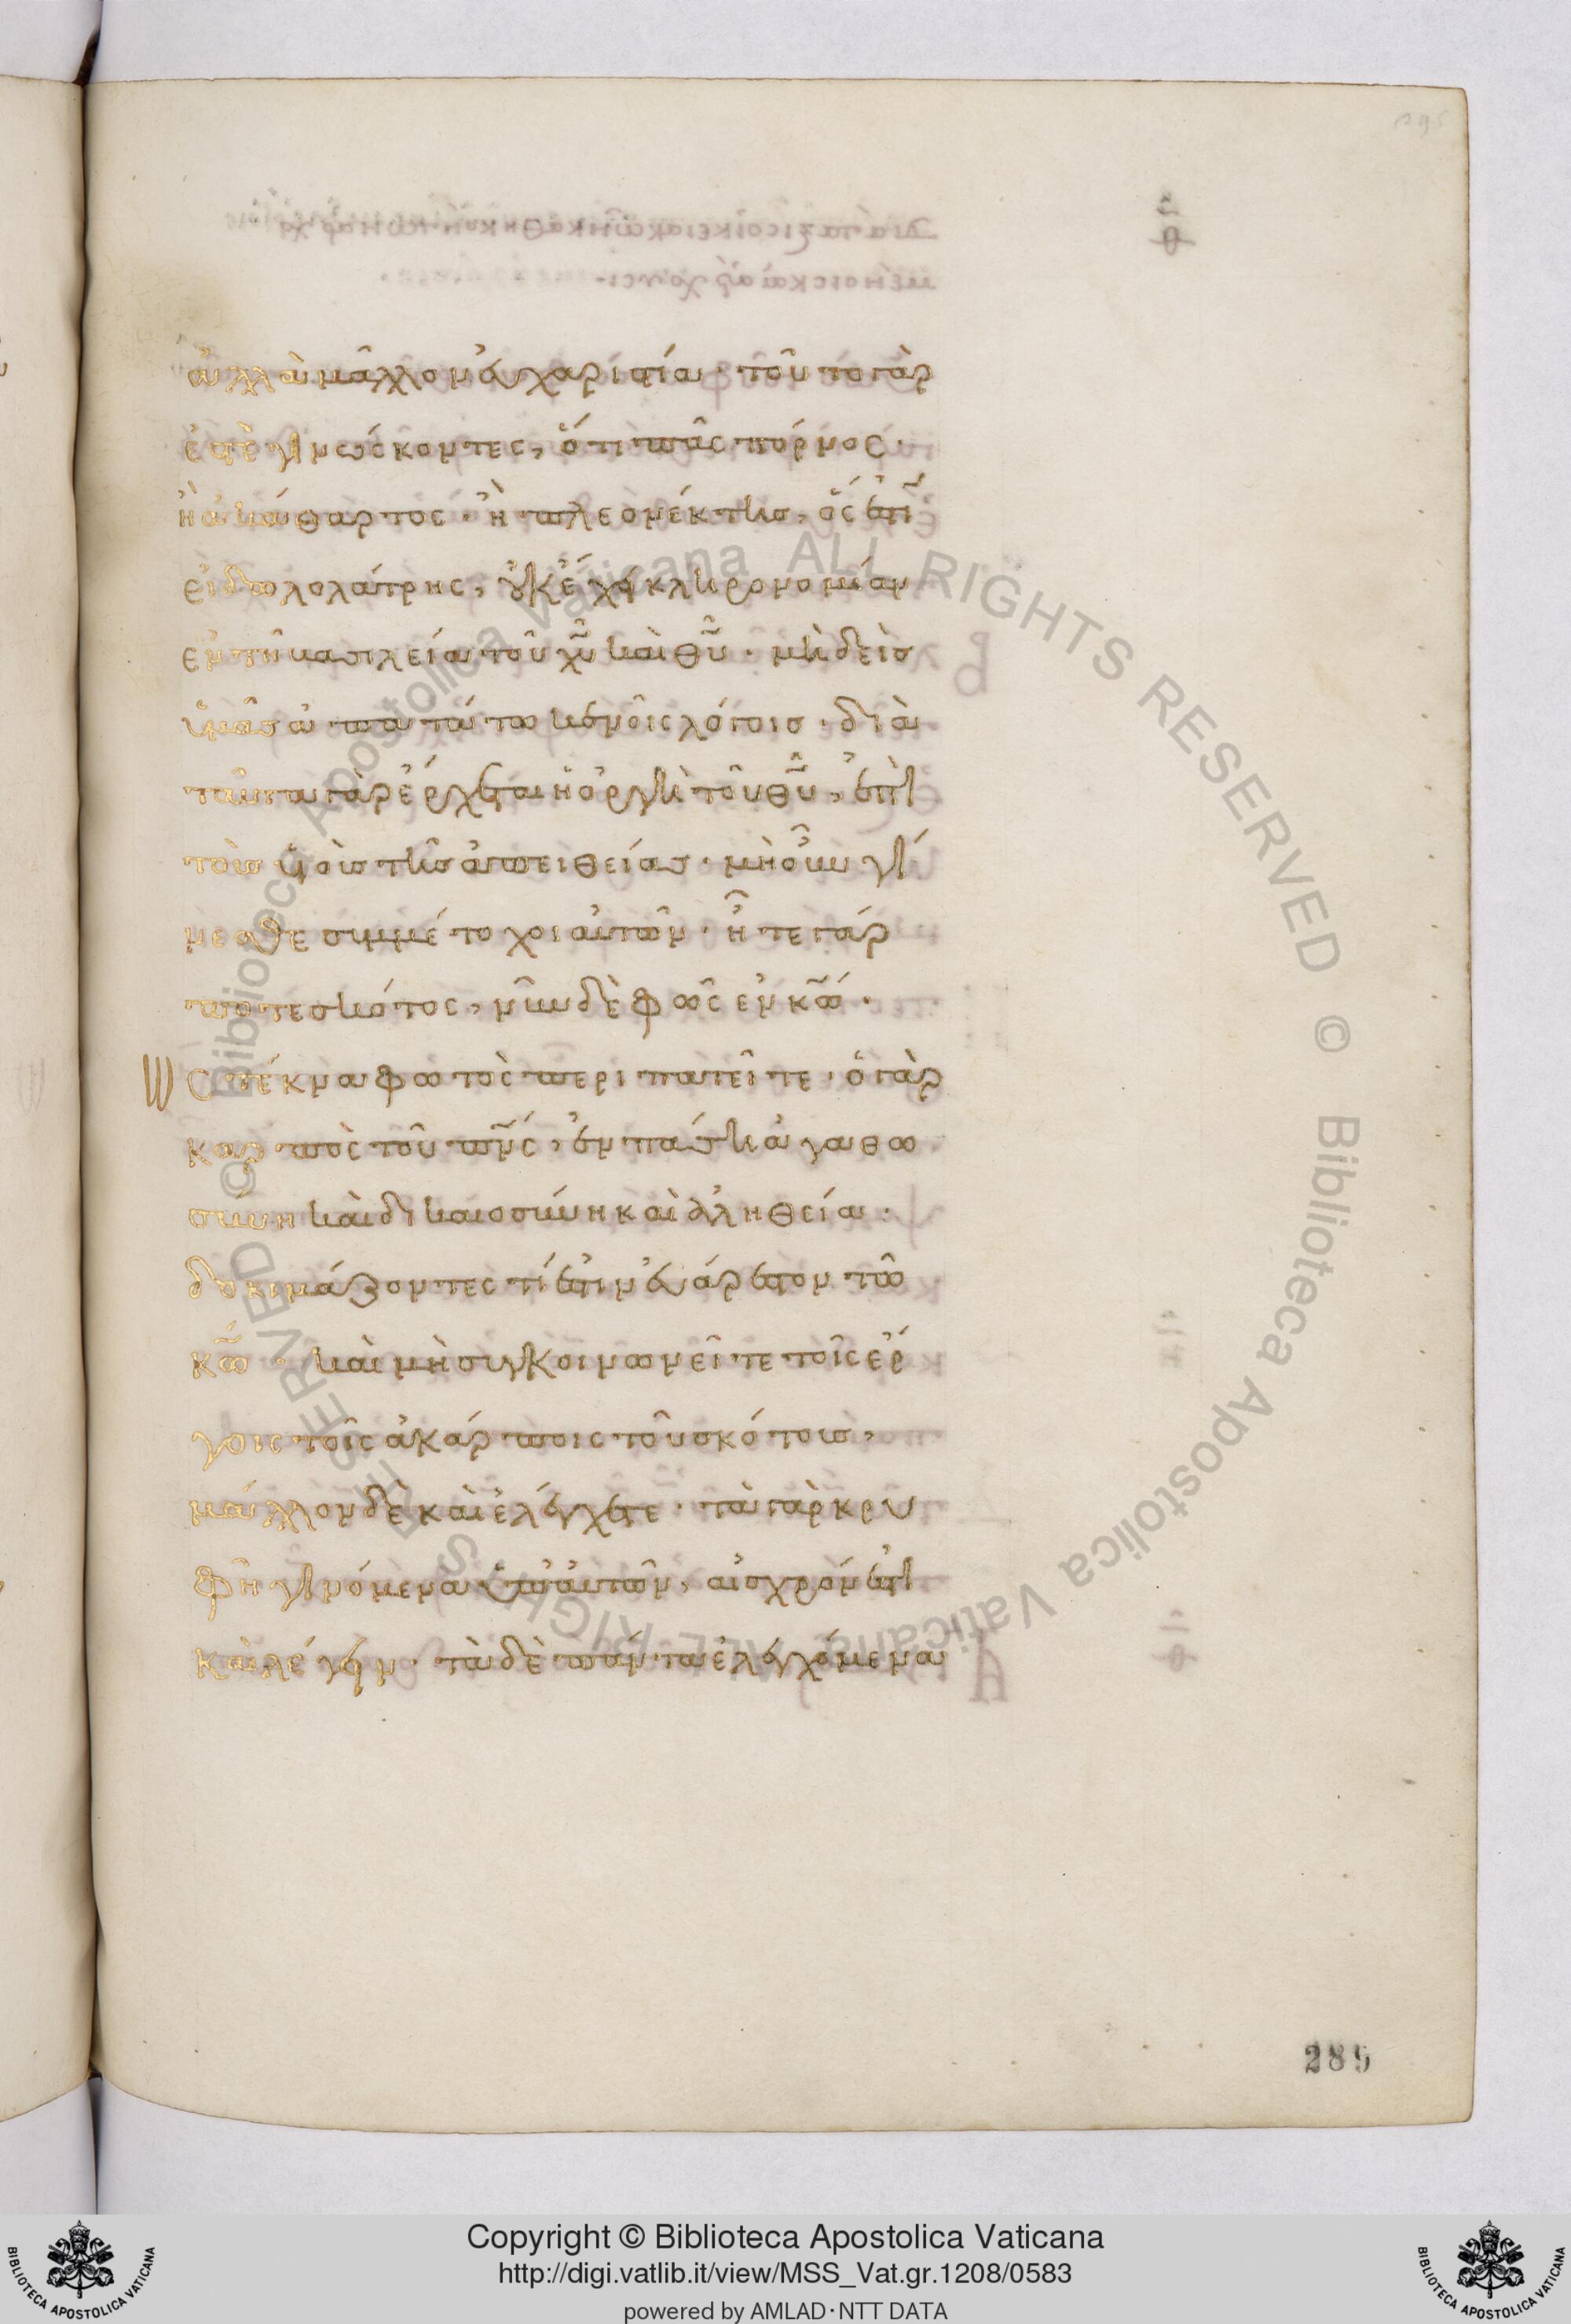 ἀλλὰ μᾶλλον εὐχαριστία· τοῦτο γὰρ
ἐστὲ γινώσκοντες, ὅτι πᾶς πόρνος·
ἢ ἀκάθαρτος· ἢ πλεονέκτης, ὅς ἐστι
εἰδωλολάτρης, οὐκ ἔχει κληρονομίαν
ἐν τῆ βασιλεία τοῦ χῦ καὶ θῦ· μηδεὶς
ὑμᾶς ἀπατάτω κενοῖς λόγοις· διὰ
ταῦτα γὰρ ἔρχεται ἡ ὀργὴ τοῦ θῦ, ἐπὶ
τοὺς υἱοὺς τῆς ἀπειθείας· μὴ οὖν γί
νεσθε συμμέτοχοι αὐτῶν· ἦτε γάρ
ποτε σκότος, νῦν δὲ φῶς ἐν κῶ·
Ὡς τέκνα φωτὸς περιπατεῖτε· ὁ γὰρ
καρπὸς τοῦ πνς, ἐν πάση ἀγαθω
σύνη καὶ δικαιοσύνη καὶ ἀληθεία·
δοκιμάζοντες τί ἐστιν εὐάρεστον τῶ
κῶ· καὶ μὴ συγκοινωνεῖτε τοῖς ἔρ
γοις τοῖς ἀκάρποις τοῦ σκότους,
μάλλον δὲ καὶ ἐλέγχετε· τὰ γὰρ κρυ
φῆ γινόμενα ὑπ' αὐτῶν, αἰσχρόν ἐστι
καὶ λέγειν· τὰ δὲ πάντα ἐλεγχόμενα
289
Copyright © Biblioteca Apostolica Vaticana
http://digi.vatlib.it/view/MSS_Vat.gr.1208/0583
powered by AMLAD·NTT DATA